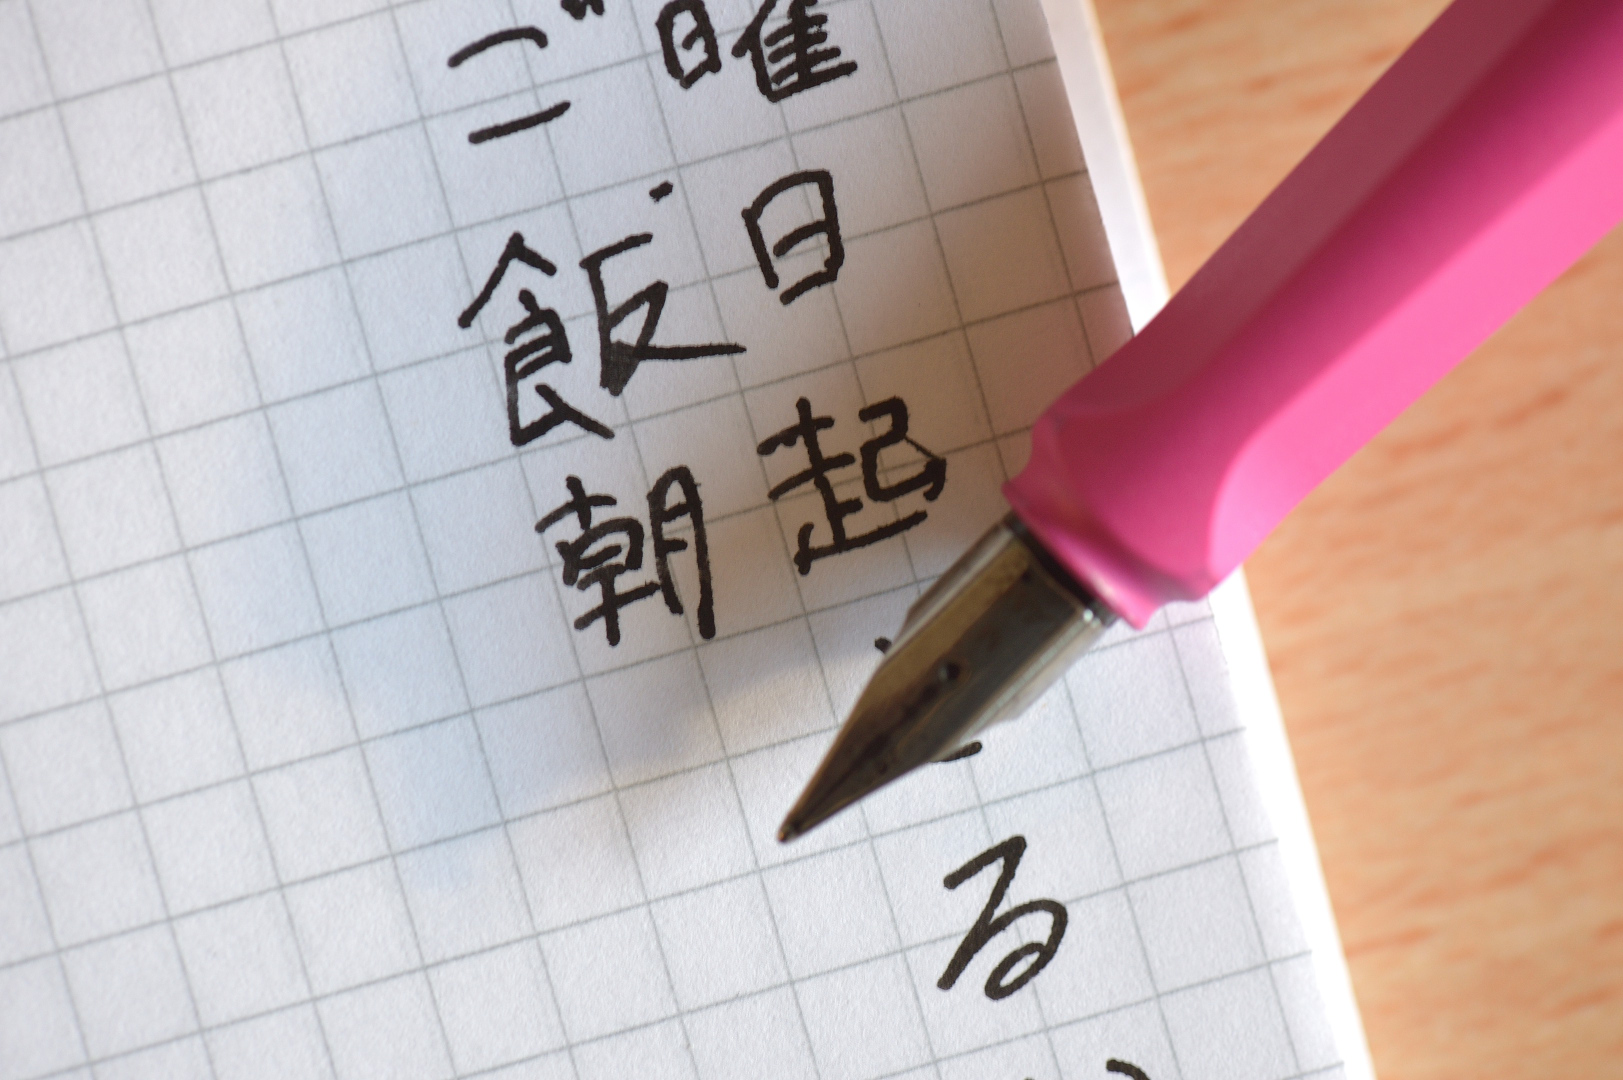 曜日起る
ご飯朝